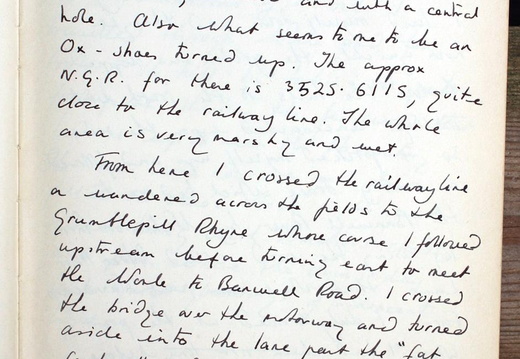 and with a central
hole. Also what seems to me to be an
Ox-shoes turned up. The approx
N.G.R. for there is 3525·6115, quite
close to the railway line. The whole
area is very marshy and wet.
From here I crossed the railway line
a wandered across the fields to the
Grumblepill Rhyne whose course I followed
upstream before turning east to meet
the Worle to Banwell Road. I crossed
the bridge over the motorway and turned
aside into the lane past the "fat